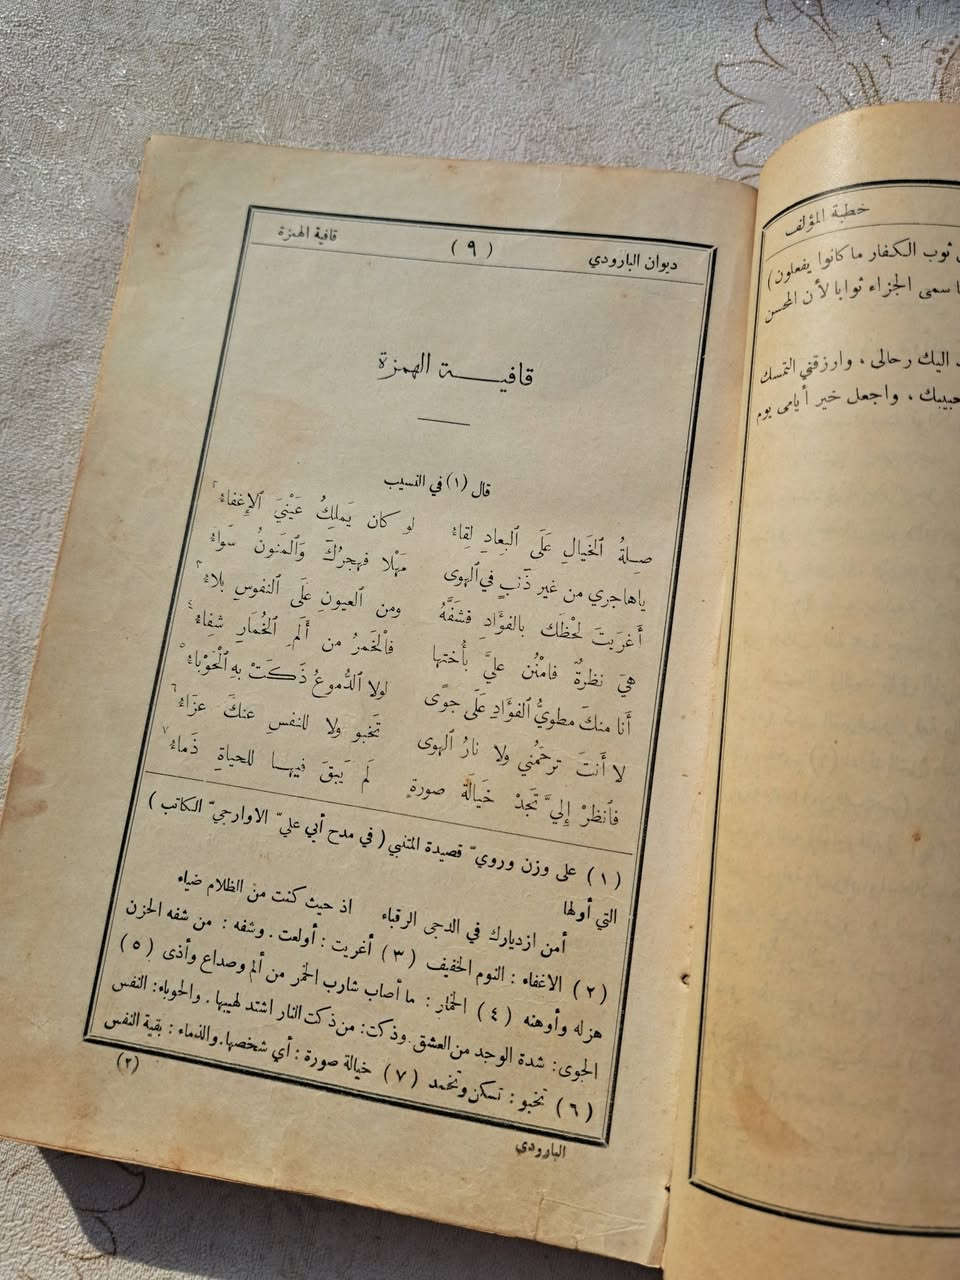 ديوان البارودي (٩) قافية الهمزة
قافيـــة الهمزة
قال (١) في النسيب
صِلةُ الخَيالِ عَلَى البِعادِ لِقاءُ لو كان يَملِكُ عَيْنَيَ الإِغفاءُ ٢
ياهاجري من غير ذَنبٍ في الهوى مَهْلا فهجرُكَ وَالمَنونُ سَواءُ
أغرَيتَ لحْظَك بالفؤَادِ فشفَّهُ ومن العيونِ عَلَى النفوسِ بلاءُ ٣
هيَ نظرةٌ فامْنُن عليَّ بأُختها فالْخمرُ من أَلَمِ الخُمَارِ شِفاءُ ٤
أَنا منكَ مطويُّ الفؤَادِ عَلَى جوًى لولا الدُّموعُ ذَكَتْ بهِ الْحَوْباءُ ٥
لا أَنتَ ترحَمُني ولا نارُ الهوى تخبو ولا للنفس عنكَ عزَاءُ ٦
فانظرْ إِليَّ تجَدْ خَيالَةَ صورةٍ لَم يَبقَ فيهـا للحياةِ ذَماءُ ٧
(١) على وزن وروي قصيدة المتنبي (في مدح أبي علي الاوارجي الكاتب)
التي أولها
أمن ازديارك في الدجى الرقباء اذ حيث كنت من الظلام ضياء
(٢) الاغفاء : النوم الخفيف (٣) أغريت : أولعت . وشفه : من شفه الحزن
هزله وأوهنه (٤) الخمار : ما أصاب شارب الخمر من ألم وصداع وأذى (٥)
الجوى : شدة الوجد من العشق . وذكت : من ذكت النار اشتد لهيبها . والحوباء : النفس
(٦) تخبو : تسكن وتخمد (٧) خيالة صورة : أي شخصها . والذماء : بقية النفس
البارودي (٢)
خطبة المؤلف
ثوب الكفار ما كانوا يفعلون)
سمى الجزاء ثوابا لأن المحسن
اليك رحالى ، وارزقني التمسك
حبيبك ، واجعل خير أيامى يوم